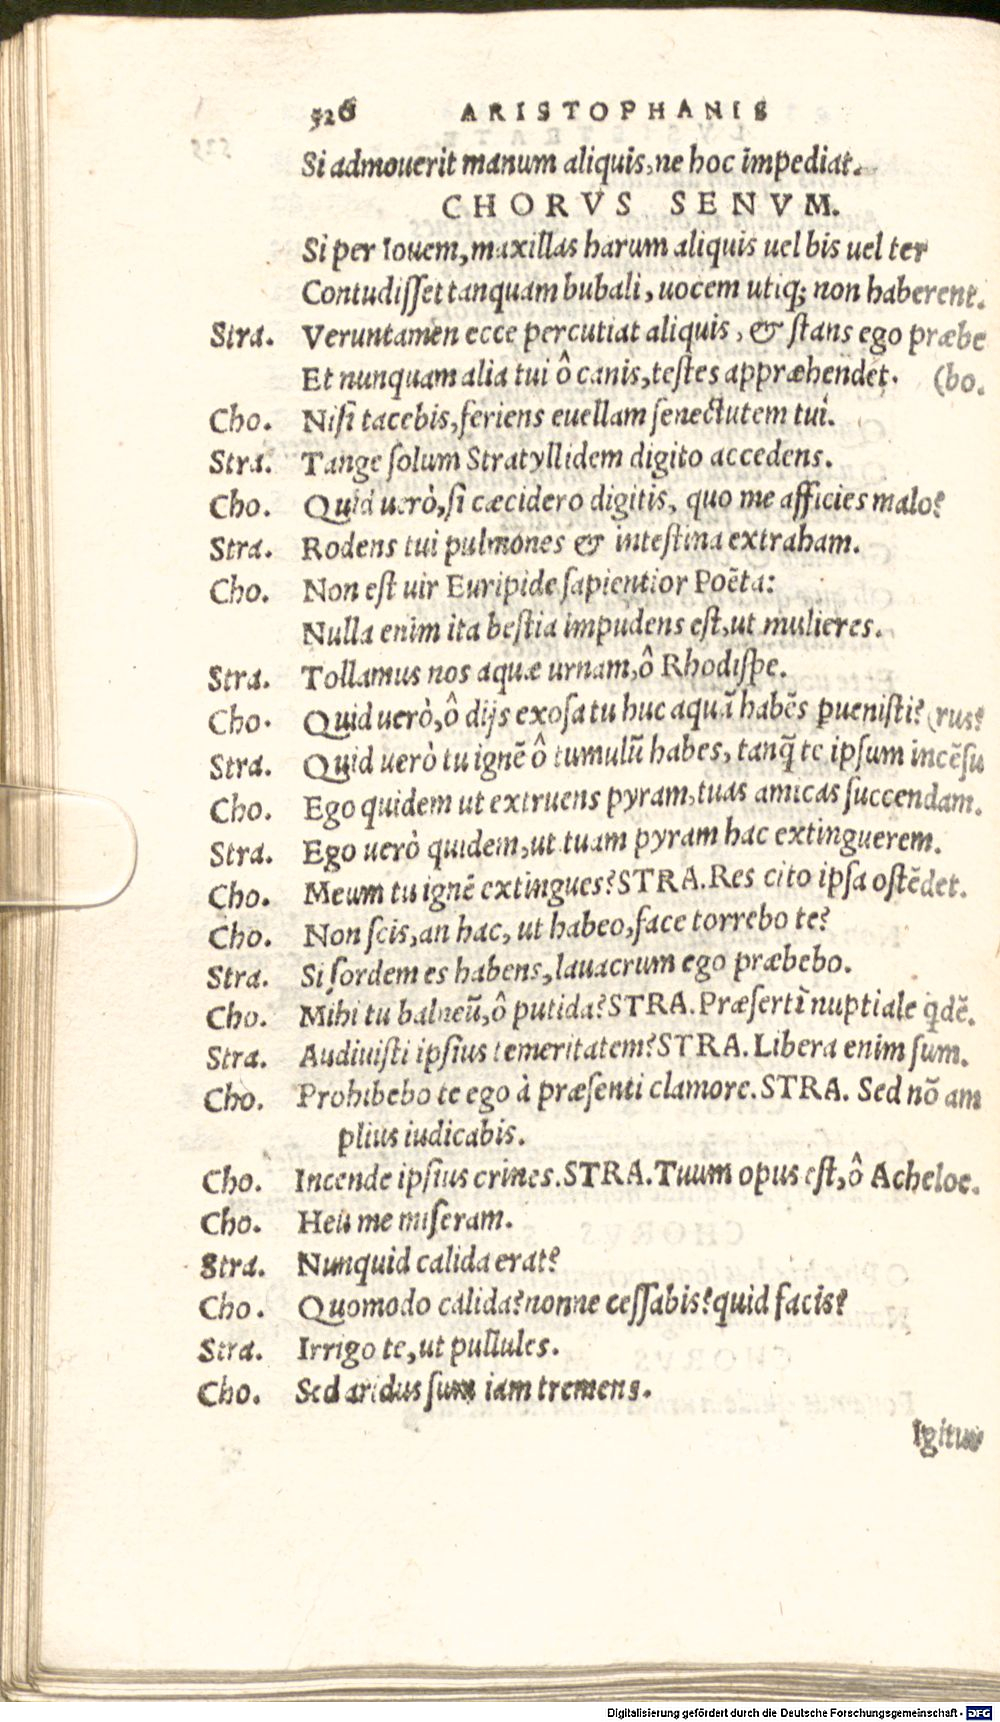 526 ARISTOPHANIS
Si admouerit manum aliquis, ne hoc impediat.
CHORVS SENVM.
Si per Iouem, maxillas harum aliquis uel bis uel ter
Contudisset tanquam bubali, uocem utiq; non haberent.
Stra. Veruntamen ecce percutiat aliquis, & stans ego præbe
Et nunquam alia tui ô canis, testes appræhendet. (bo.
Cho. Nisi tacebis, feriens euellam senectutem tui.
Stra. Tange solum Stratyllidem digito accedens.
Cho. Quid uerò, si cæcidero digitis, quo me afficies malo?
Stra. Rodens tui pulmones & intestina extraham.
Cho. Non est uir Euripide sapientior Poëta:
Nulla enim ita bestia impudens est, ut mulieres.
Stra. Tollamus nos aquæ urnam, ô Rhodispe.
Cho. Quid uerò, ô dijs exosa tu huc aquã habẽs ꝑuenisti? (rus?
Stra. Quid uerò tu ignẽ ô tumulũ habes, tanq̃ te ipsum incẽsu
Cho. Ego quidem ut extruens pyram, tuas amicas succendam.
Stra. Ego uerò quidem, ut tuam pyram hac extinguerem.
Cho. Meum tu ignẽ extingues? STRA. Res cito ipsa ostẽdet.
Cho. Non scis, an hac, ut habeo, face torrebo te?
Stra. Si sordem es habens, lauacrum ego præbebo.
Cho. Mihi tu balneũ, ô putida? STRA. Præsertĩ nuptiale qdẽ.
Stra. Audiuisti ipsius temeritatem? STRA. Libera enim sum.
Cho. Prohibebo te ego à præsenti clamore. STRA. Sed nõ am
plius iudicabis.
Cho. Incende ipsius crines. STRA. Tuum opus est, ô Acheloe.
Cho. Heu me miseram.
Stra. Nunquid calida erat?
Cho. Quomodo calida? nonne cessabis? quid facis?
Stra. Irrigo te, ut pullules.
Cho. Sed aridus sum iam tremens.
Igitur
Digitalisierung gefördert durch die Deutsche Forschungsgemeinschaft - DFG